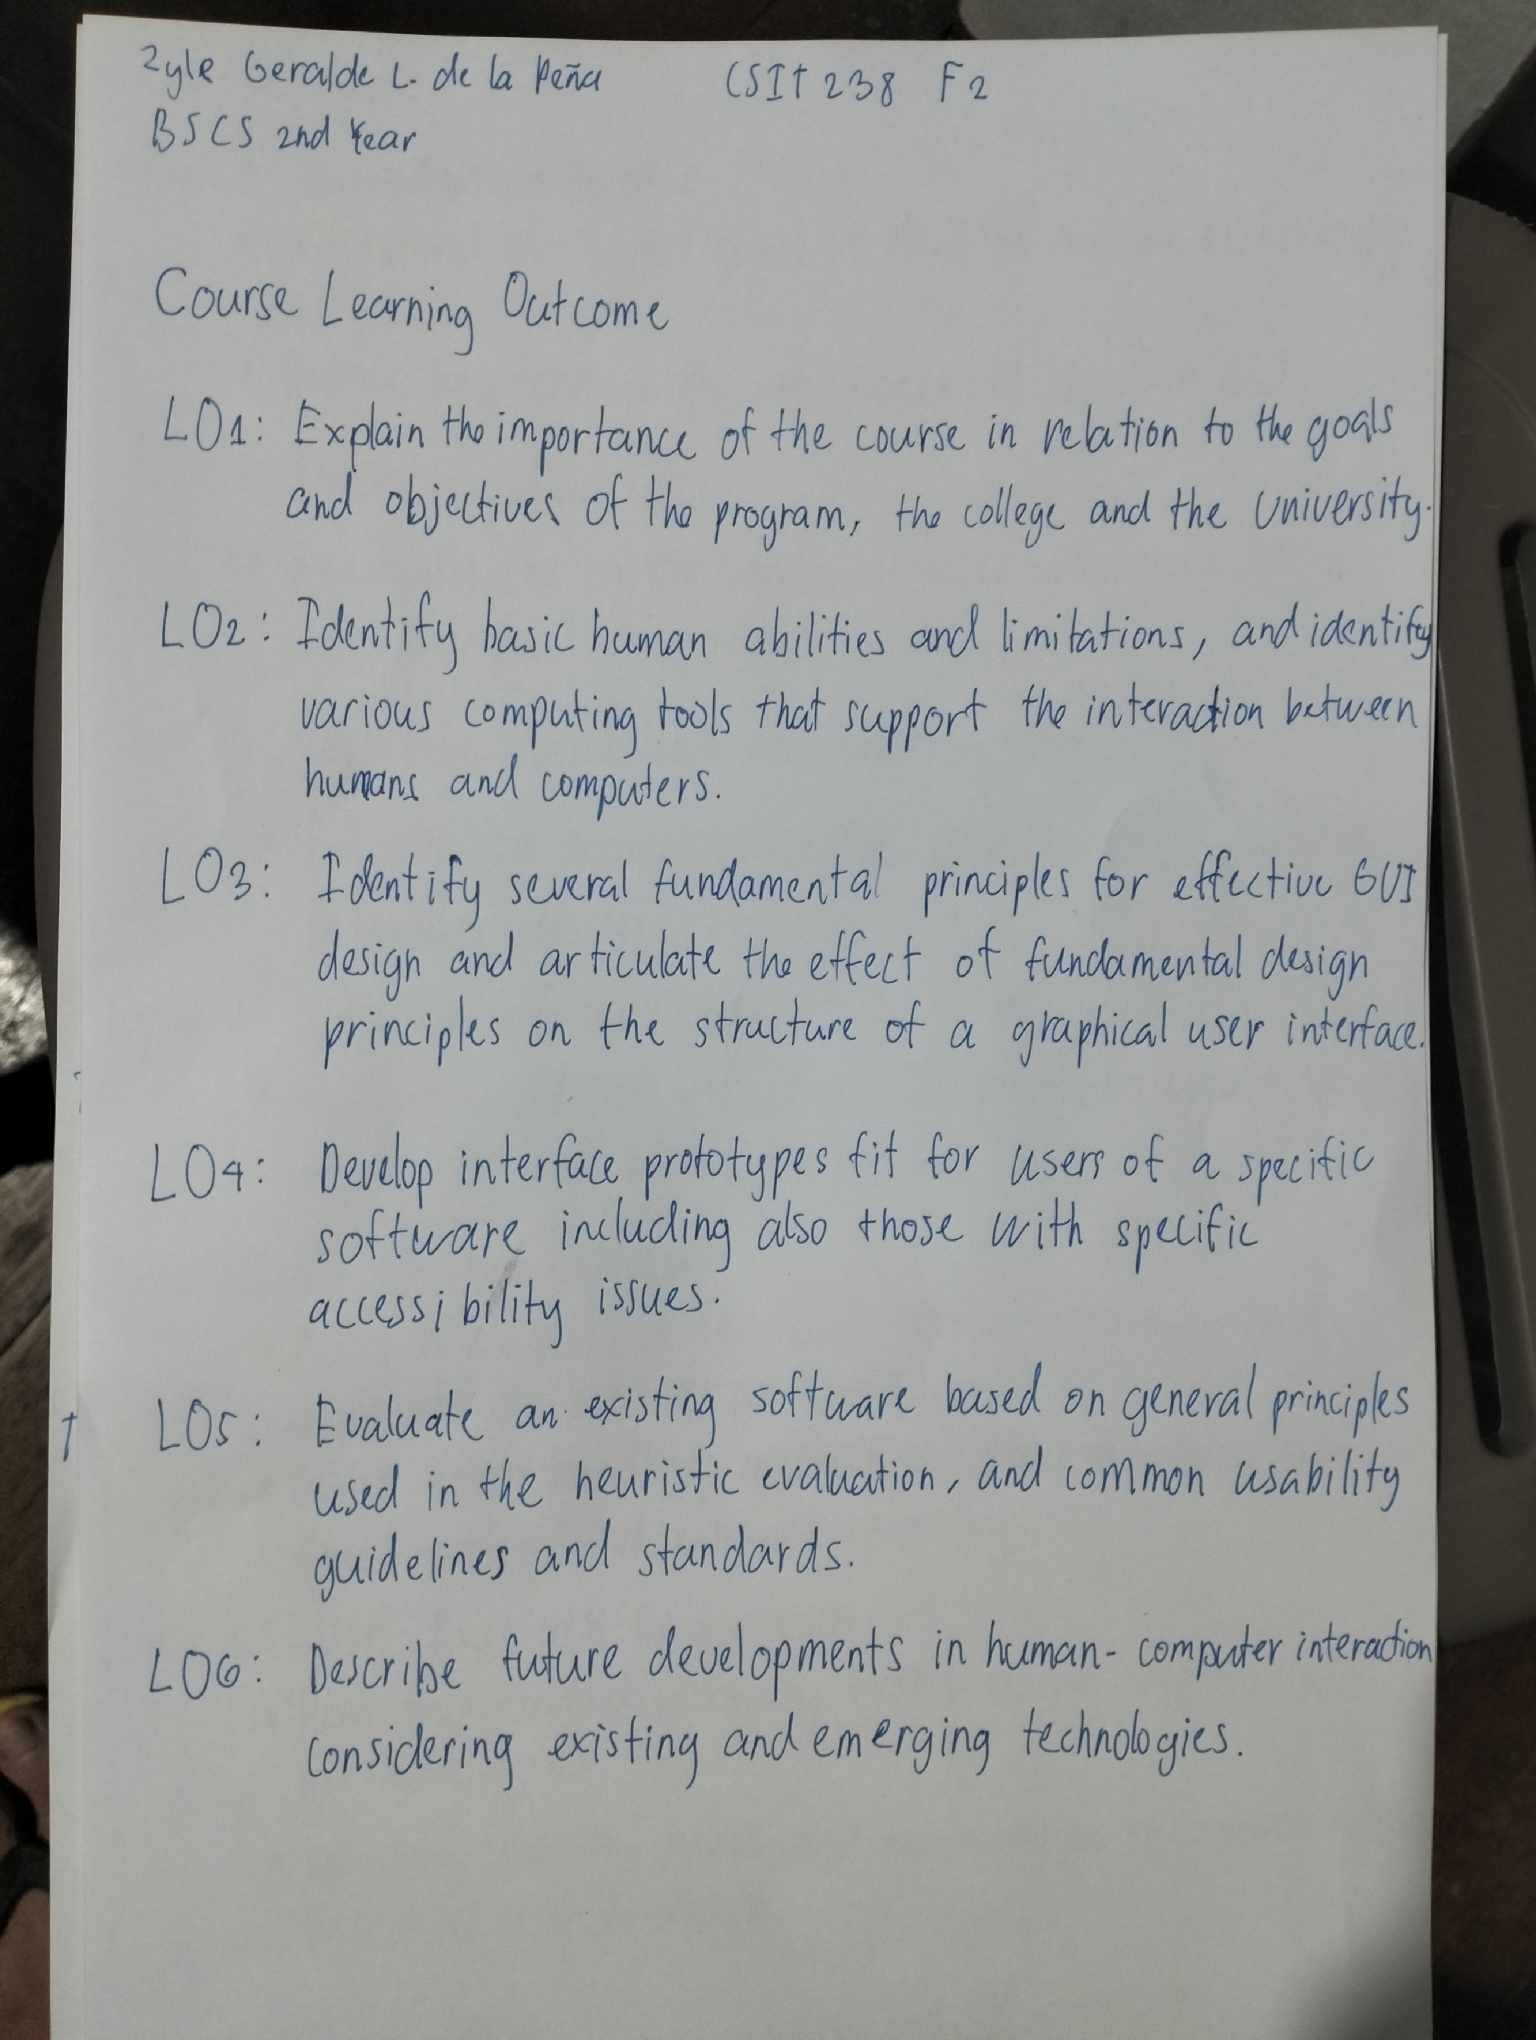 Zyle Geralde L. de la Peña CSIT 238 F2
BSCS 2nd Year
Course Learning Outcome
LO1: Explain the importance of the course in relation to the goals
and objectives of the program, the college and the University.
LO2: Identify basic human abilities and limitations, and identify
various computing tools that support the interaction between
humans and computers.
LO3: Identify several fundamental principles for effective GUI
design and articulate the effect of fundamental design
principles on the structure of a graphical user interface.
LO4: Develop interface prototypes fit for users of a specific
software including also those with specific
accessibility issues.
LO5: Evaluate an existing software based on general principles
used in the heuristic evaluation, and common usability
guidelines and standards.
LO6: Describe future developments in human-computer interaction
considering existing and emerging technologies.